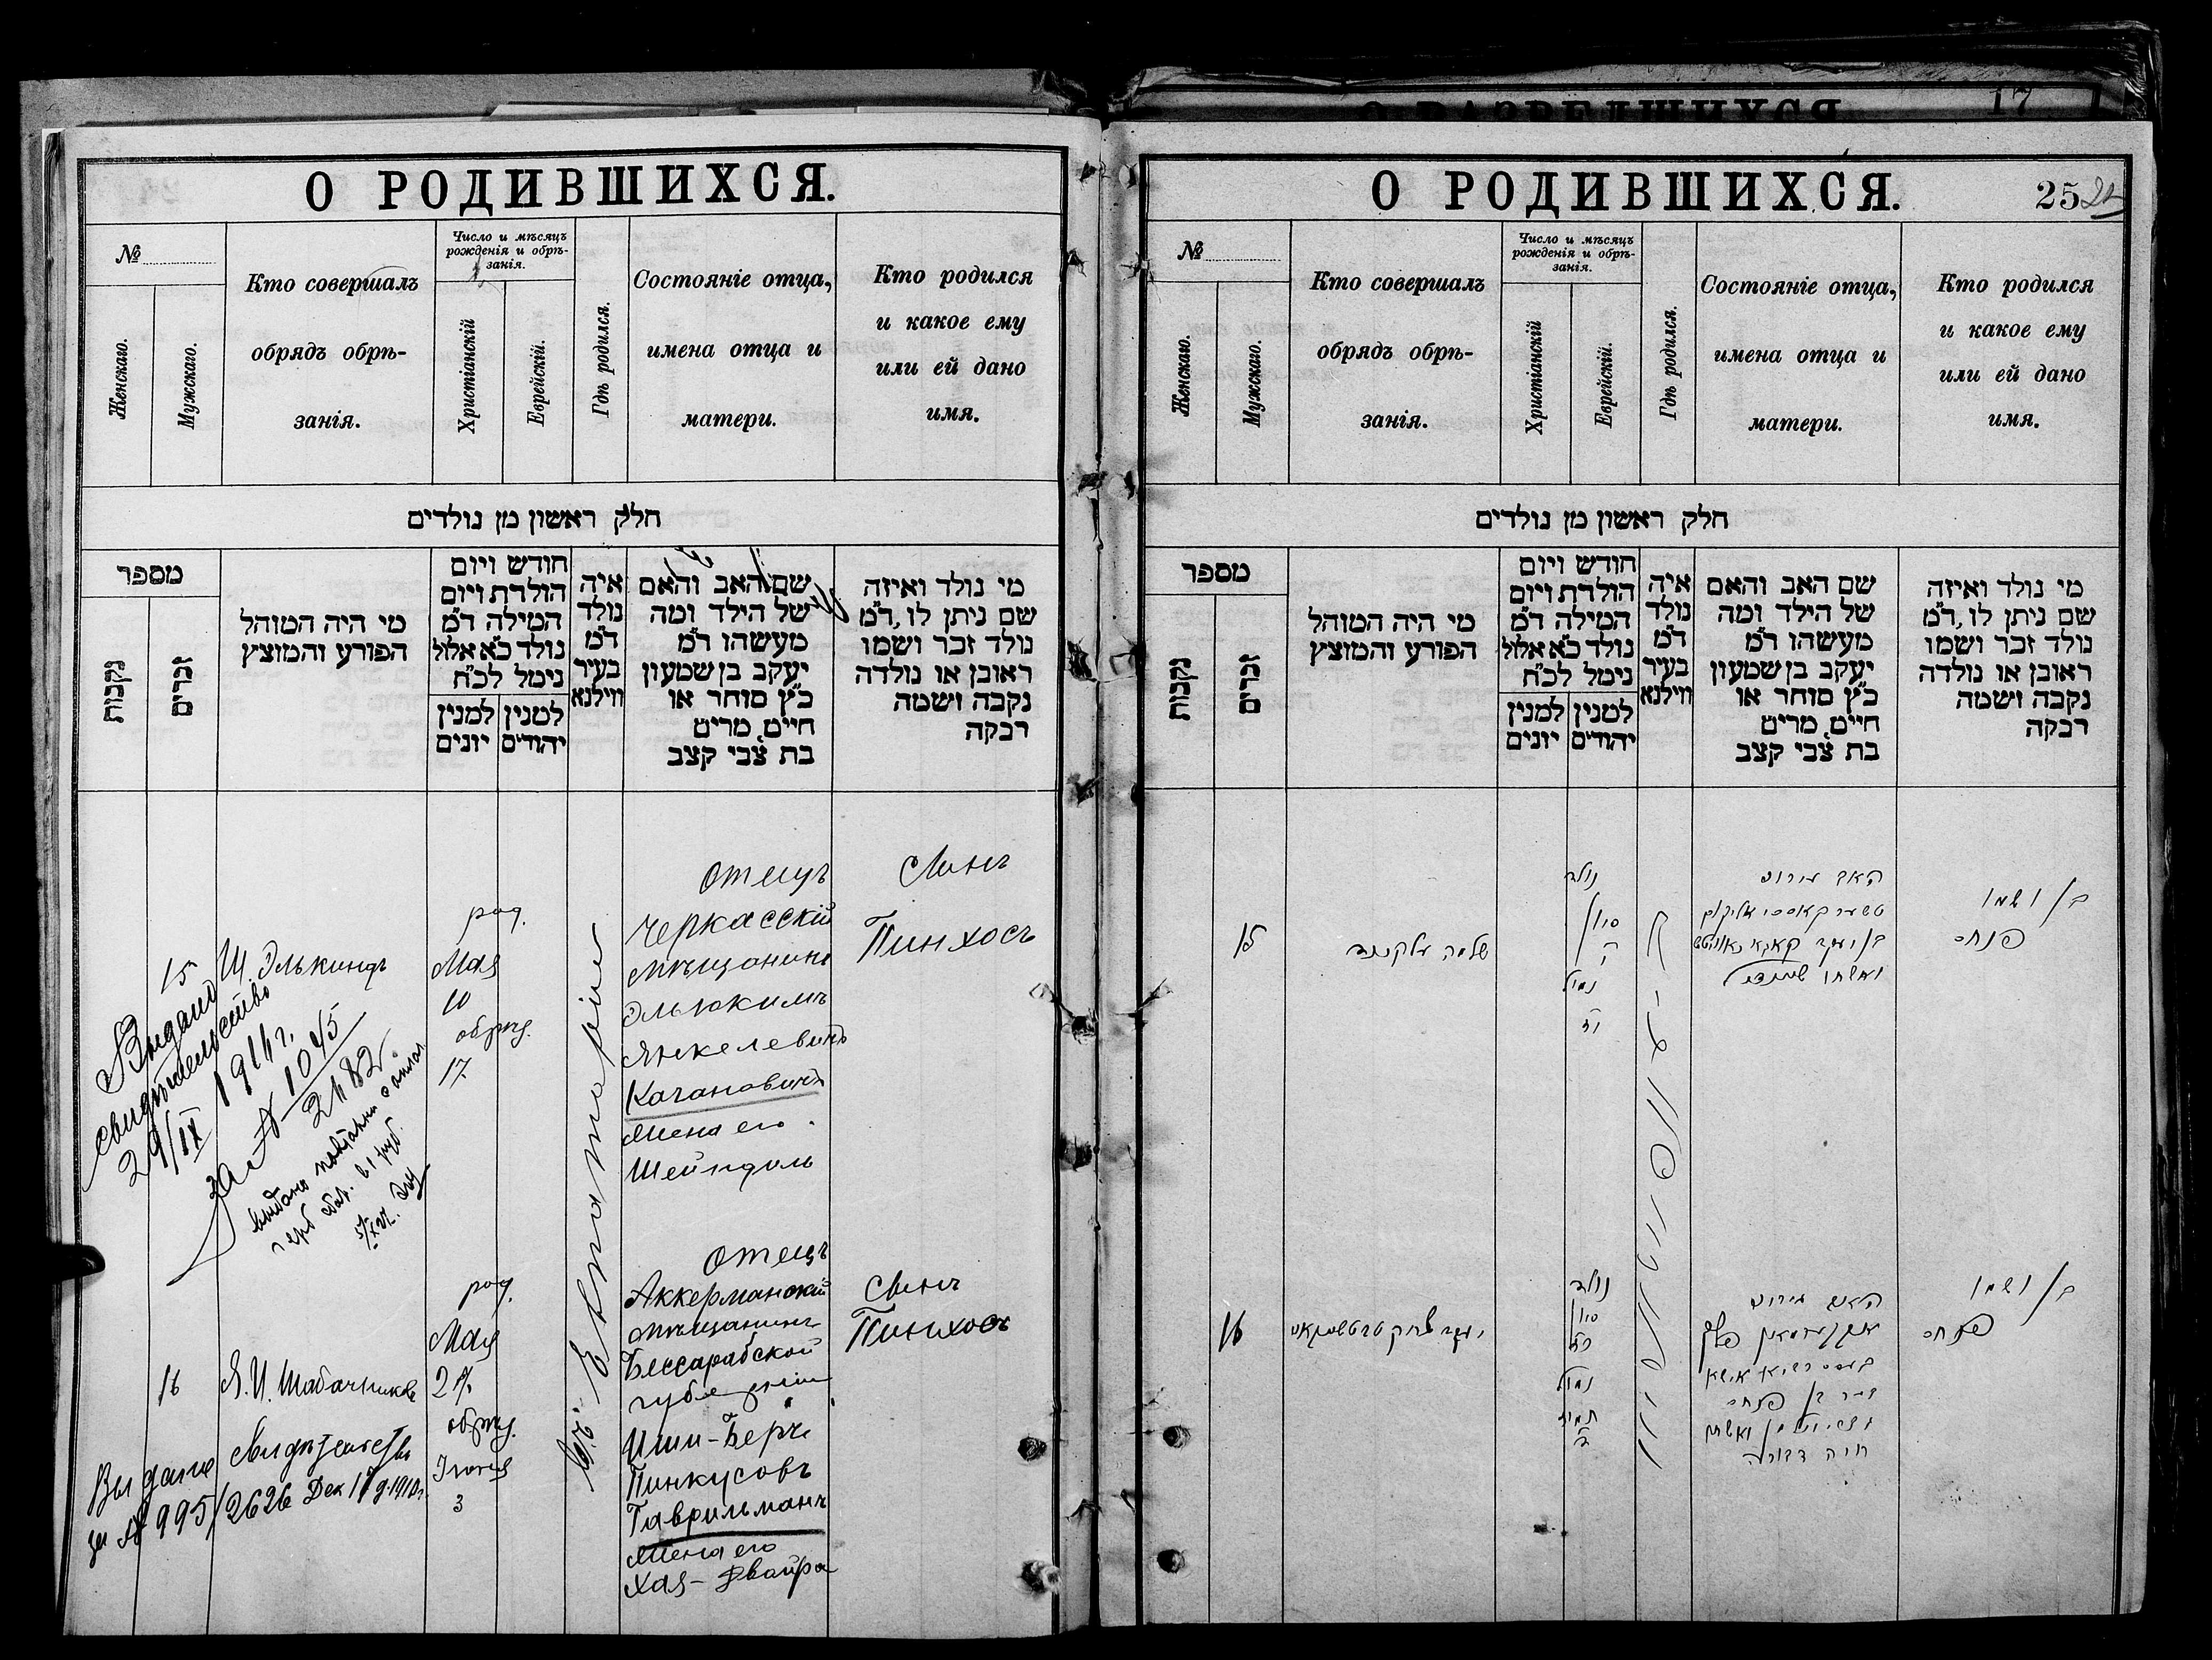 17
О РОДИВШИХСЯ.
№
Женскаго.
Мужскаго.
Кто совершалъ
обрядъ обрѣ-
занія.
Число и мѣсяцъ
рожденія и обрѣ-
занія.
Христіанскій
Еврейскій.
Гдѣ родился.
Состояніе отца,
имена отца и
матери.
Кто родился
и какое ему
или ей дано
имя.
חלק ראשון מן נולדים
מספר
נקבות
זכרים
מי היה המוהל
הפורע והמוצץ
חודש ויום
הולדת ויום
המילה ד״מ
נולד כ״א אלול
נימל לכ״ח
למנין יונים
למנין יהודים
איה
נולד
ד״מ
בעיר
ווילנא
שם האב והאם
של הילד ומה
מעשהו ד״מ
יעקב בן שמעון
כ״ץ סוחר או
חיים, מרים
בת צבי קצב
מי נולד ואיזה
שם ניתן לו, ד״מ
נולד זכר ושמו
ראובן או נולדה
נקבה ושמה
רבקה
15
Ш. Элькиндъ
род.
Мая
10
обрѣз.
17
г. Евпаторіи
Отецъ
Черкасскій
мѣщанинъ
Эльюкимъ
Янкелевичъ
Кагановичъ
Жена его
Шейндель
Сынъ
Пинхосъ
Выдано
свидѣтельство
29/IX 1914 г.
за № 1045
2482
16
Я. И. Шабачниковъ
род.
Мая
27
обрѣз.
Іюня
3
Отецъ
Аккерманскій
мѣщанинъ
Бессарабской
губерніи
Иши-Беръ
Пинкусовъ
Гаврильманъ
Жена его
Хая-Двойра
Сынъ
Пинхосъ
Выдано свидѣтельство
за № 995/2626 Дек 17 д. 1910 г.
О РОДИВШИХСЯ.
25
№
Женскаго.
Мужскаго.
Кто совершалъ
обрядъ обрѣ-
занія.
Число и мѣсяцъ
рожденія и обрѣ-
занія.
Христіанскій
Еврейскій.
Гдѣ родился.
Состояніе отца,
имена отца и
матери.
Кто родился
и какое ему
или ей дано
имя.
חלק ראשון מן נולדים
מספר
נקבות
זכרים
מי היה המוהל
הפורע והמוצץ
חודש ויום
הולדת ויום
המילה ד״מ
נולד כ״א אלול
נימל לכ״ח
למנין יונים
למנין יהודים
איה
נולד
ד״מ
בעיר
ווילנא
שם האב והאם
של הילד ומה
מעשהו ד״מ
יעקב בן שמעון
כ״ץ סוחר או
חיים, מרים
בת צבי קצב
מי נולד ואיזה
שם ניתן לו, ד״מ
נולד זכר ושמו
ראובן או נולדה
נקבה ושמה
רבקה
15
שלמה עלקינד
נולד
סיון
נמול
האב
בן ושמו
פנחס
16
נולד
סיון
נמול
תמוז
האב
בן פנחס
ואשתו
חיה דבורה
בן ושמו
פנחס